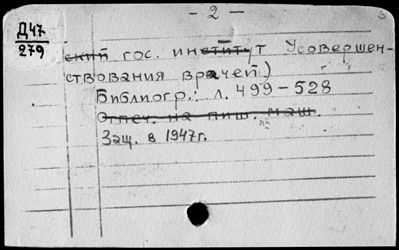 - 2 -
Д47
279
ский гос. институт Усовершен-
ствования врачей)
Библиогр.: л. 499-528
Отпеч. на пиш. маш.
Защ. в 1947г.